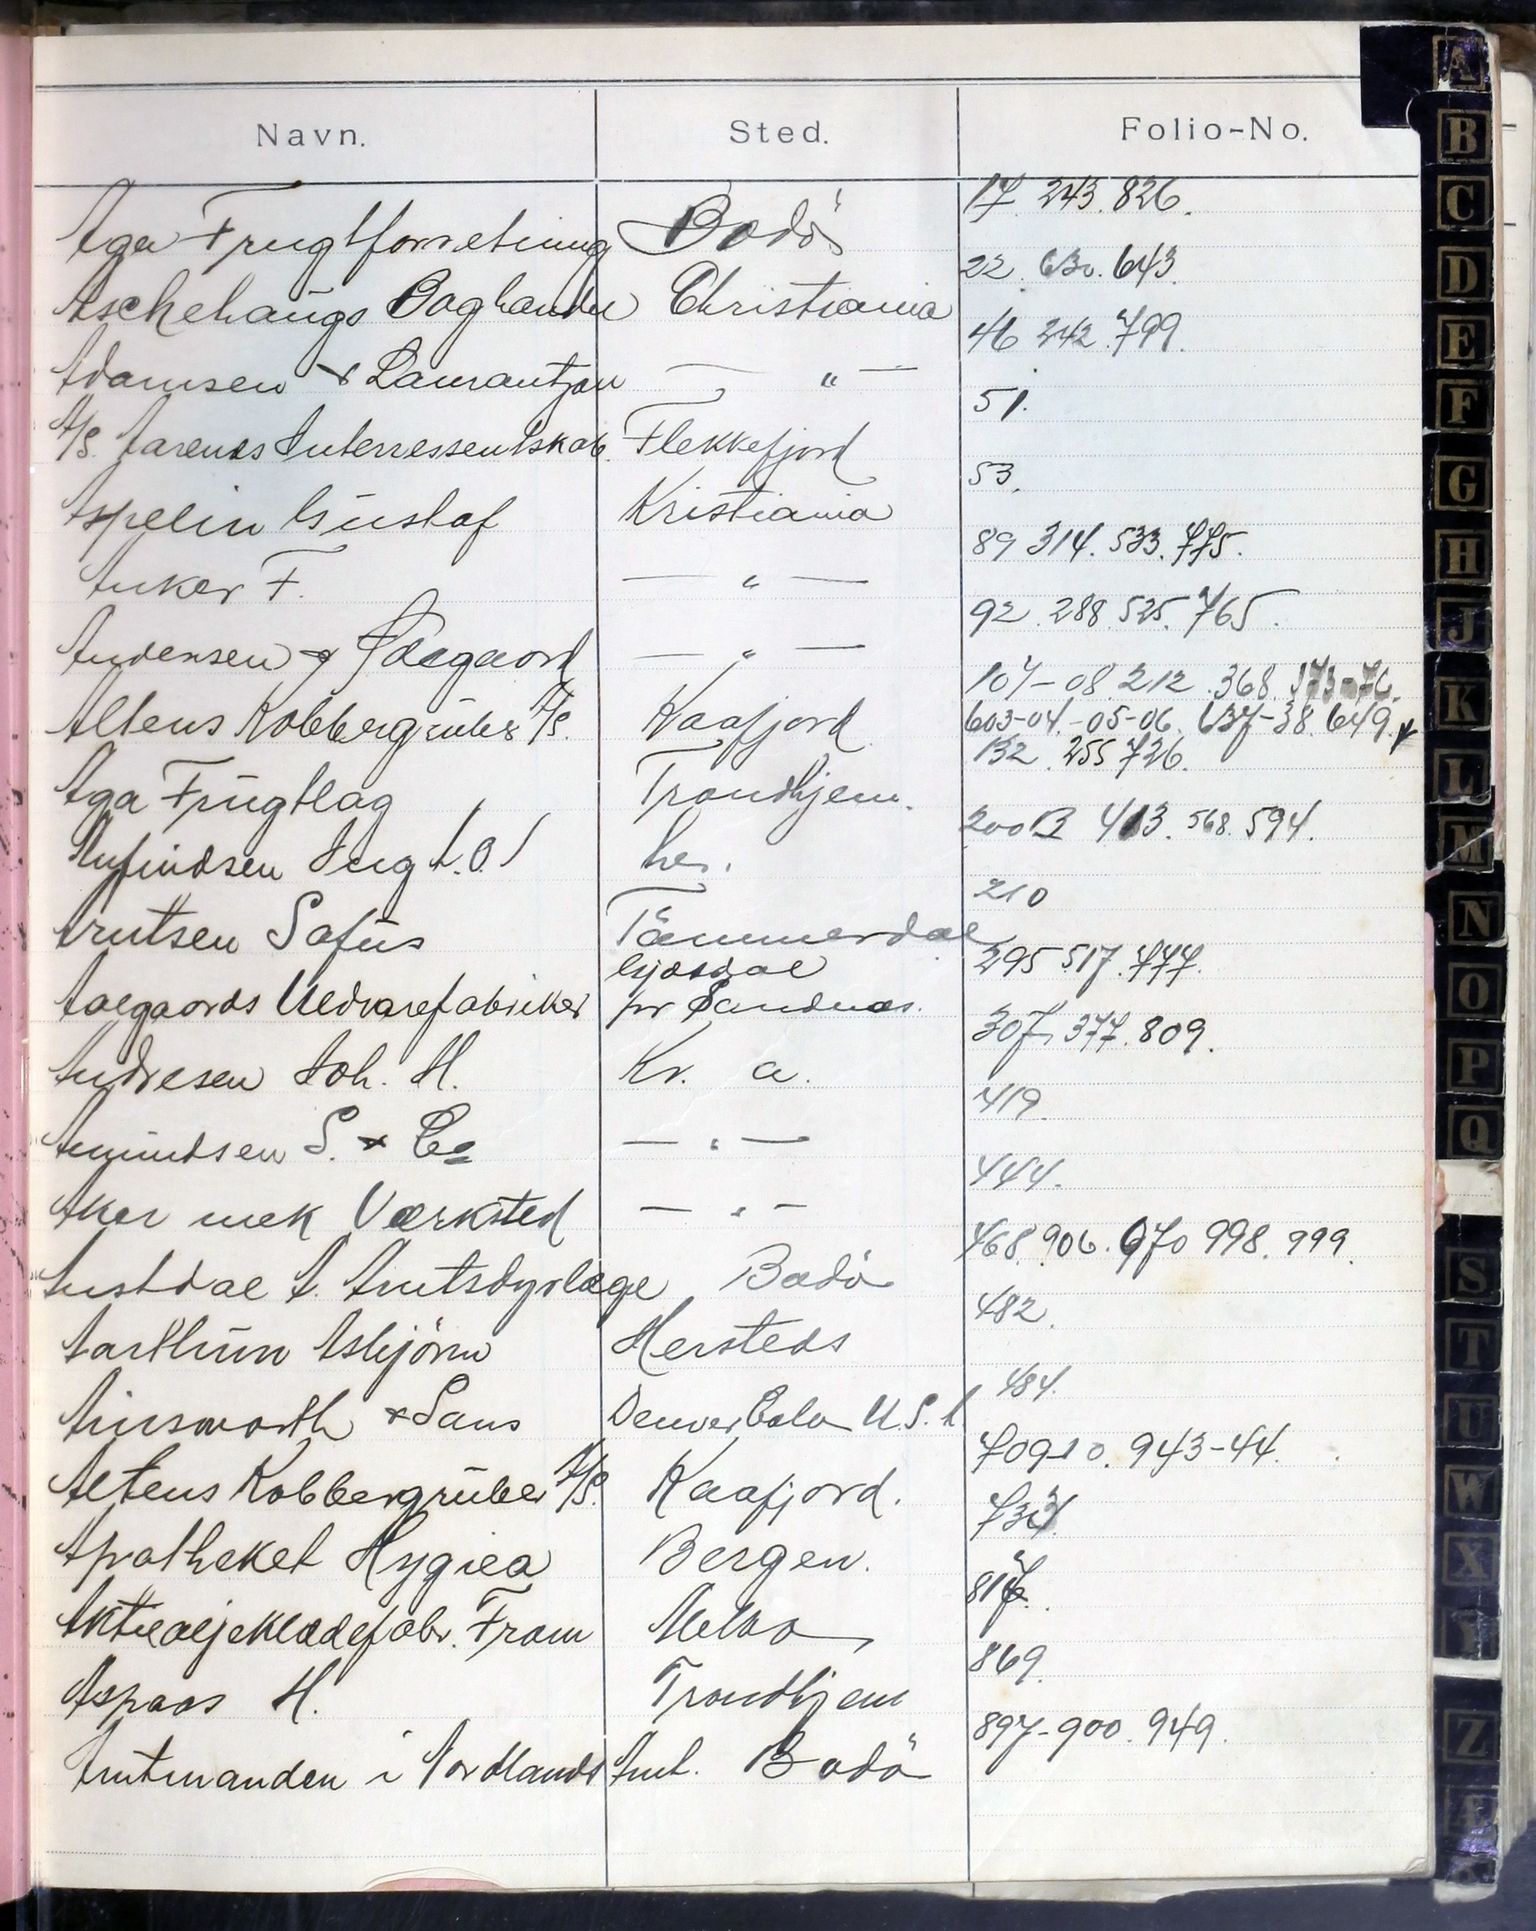 Navn. Sted. Folio-No.
Aga Frugtforretning Bodö 17. 243. 826.
Aschehaugs Boghandel Christiania 22. 630. 643.
Adamsen & Laurantzon — " — 46 242. 799.
A/S. Aarenes Interressentskab. Flekkefjord 51.
Aspelin Gustaf Kristiania 53.
Anker F. — " — 89 314. 533. 775.
Andersen & Ødegaard — " — 92. 288. 525. 765.
Altens Kobbergruber A/S. Kaafjord 107-08. 212. 368.
603-04-05-06. 637-38. 649.
Aga Frugtlag Trondhjem. 132. 255 726.
Arfindsen Ing A.O. her. 200 B 413. 568. 594.
Arntsen Sofus Tömmerdal 210
Aalgaards Uldvarefabriker Gjesdal pr Sandnæs. 295 517. 777.
Andresen Joh. H. Kr. a. 307. 377. 809.
Amundsen S. & Co — " — 419.
Aker mek Værksted — " — 444.
Austdal A. Amtsdyrlæge Bodö 468. 906. 970 998. 999
Aarthun Asbjörn Hersteds 482.
Ainsworth & Sons Denver Colo U.S.A 484.
Altens Kobbergruber A/S. Kaafjord. 709-10. 943-44.
Apotheket Hygiea Bergen. 733.
Aktieoljeklædefabr. Fram Melbo 817.
Aspaas H. Trondhjem 869.
Amtmanden i Nordlands Amt. Bodö 897-900. 949.
A
B
C
D
E
F
G
H
J
K
L
M
N
O
P
Q
S
T
U
W
X
Y
Z
Æ